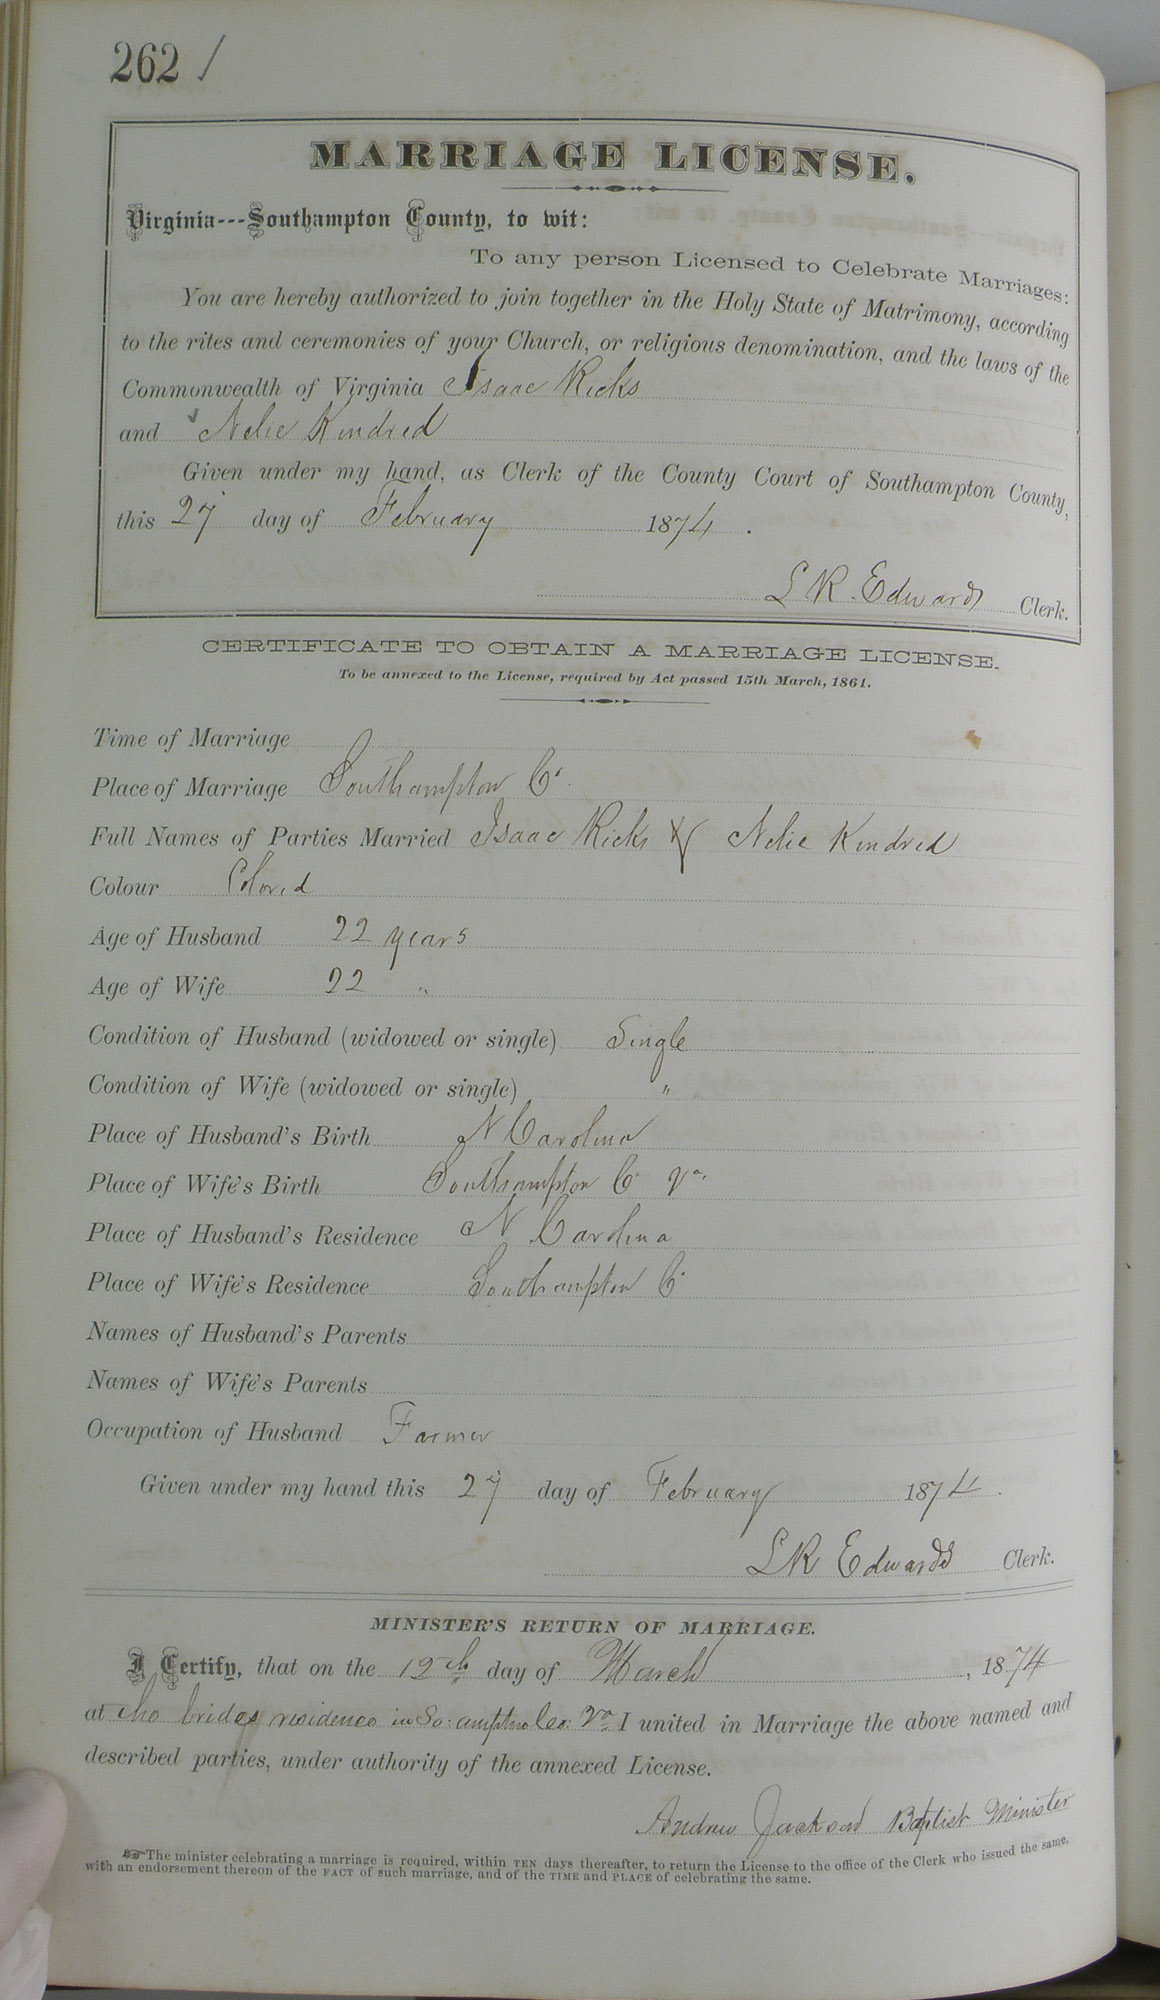 262 /
MARRIAGE LICENSE.
Virginia---Southampton County, to wit:
To any person Licensed to Celebrate Marriages:
You are hereby authorized to join together in the Holy State of Matrimony, according
to the rites and ceremonies of your Church, or religious denomination, and the laws of the
Commonwealth of Virginia Isaac Ricks
and Nelie Kindred
Given under my hand, as Clerk of the County Court of Southampton County,
this 27 day of February 1874.
L R Edwards Clerk.
CERTIFICATE TO OBTAIN A MARRIAGE LICENSE.
To be annexed to the License, required by Act passed 15th March, 1861.
Time of Marriage
Place of Marriage Southampton Co.
Full Names of Parties Married Isaac Ricks & Nelie Kindred
Colour Colored
Age of Husband 22 years
Age of Wife 22 "
Condition of Husband (widowed or single) Single
Condition of Wife (widowed or single) "
Place of Husband's Birth N Carolina
Place of Wife's Birth Southampton Co Va.
Place of Husband's Residence N Carolina
Place of Wife's Residence Southampton Co
Names of Husband's Parents
Names of Wife's Parents
Occupation of Husband Farmer
Given under my hand this 27 day of February 1874.
L R Edwards Clerk.
MINISTER'S RETURN OF MARRIAGE.
I Certify, that on the 12th day of March, 1874
at the brides residence in So: ampton Co: Va I united in Marriage the above named and
described parties, under authority of the annexed License.
Andrew Jackson Baptist Minister
☞The minister celebrating a marriage is required, within TEN days thereafter, to return the License to the office of the Clerk who issued the same,
with an endorsement thereon of the FACT of such marriage, and of the TIME and PLACE of celebrating the same.